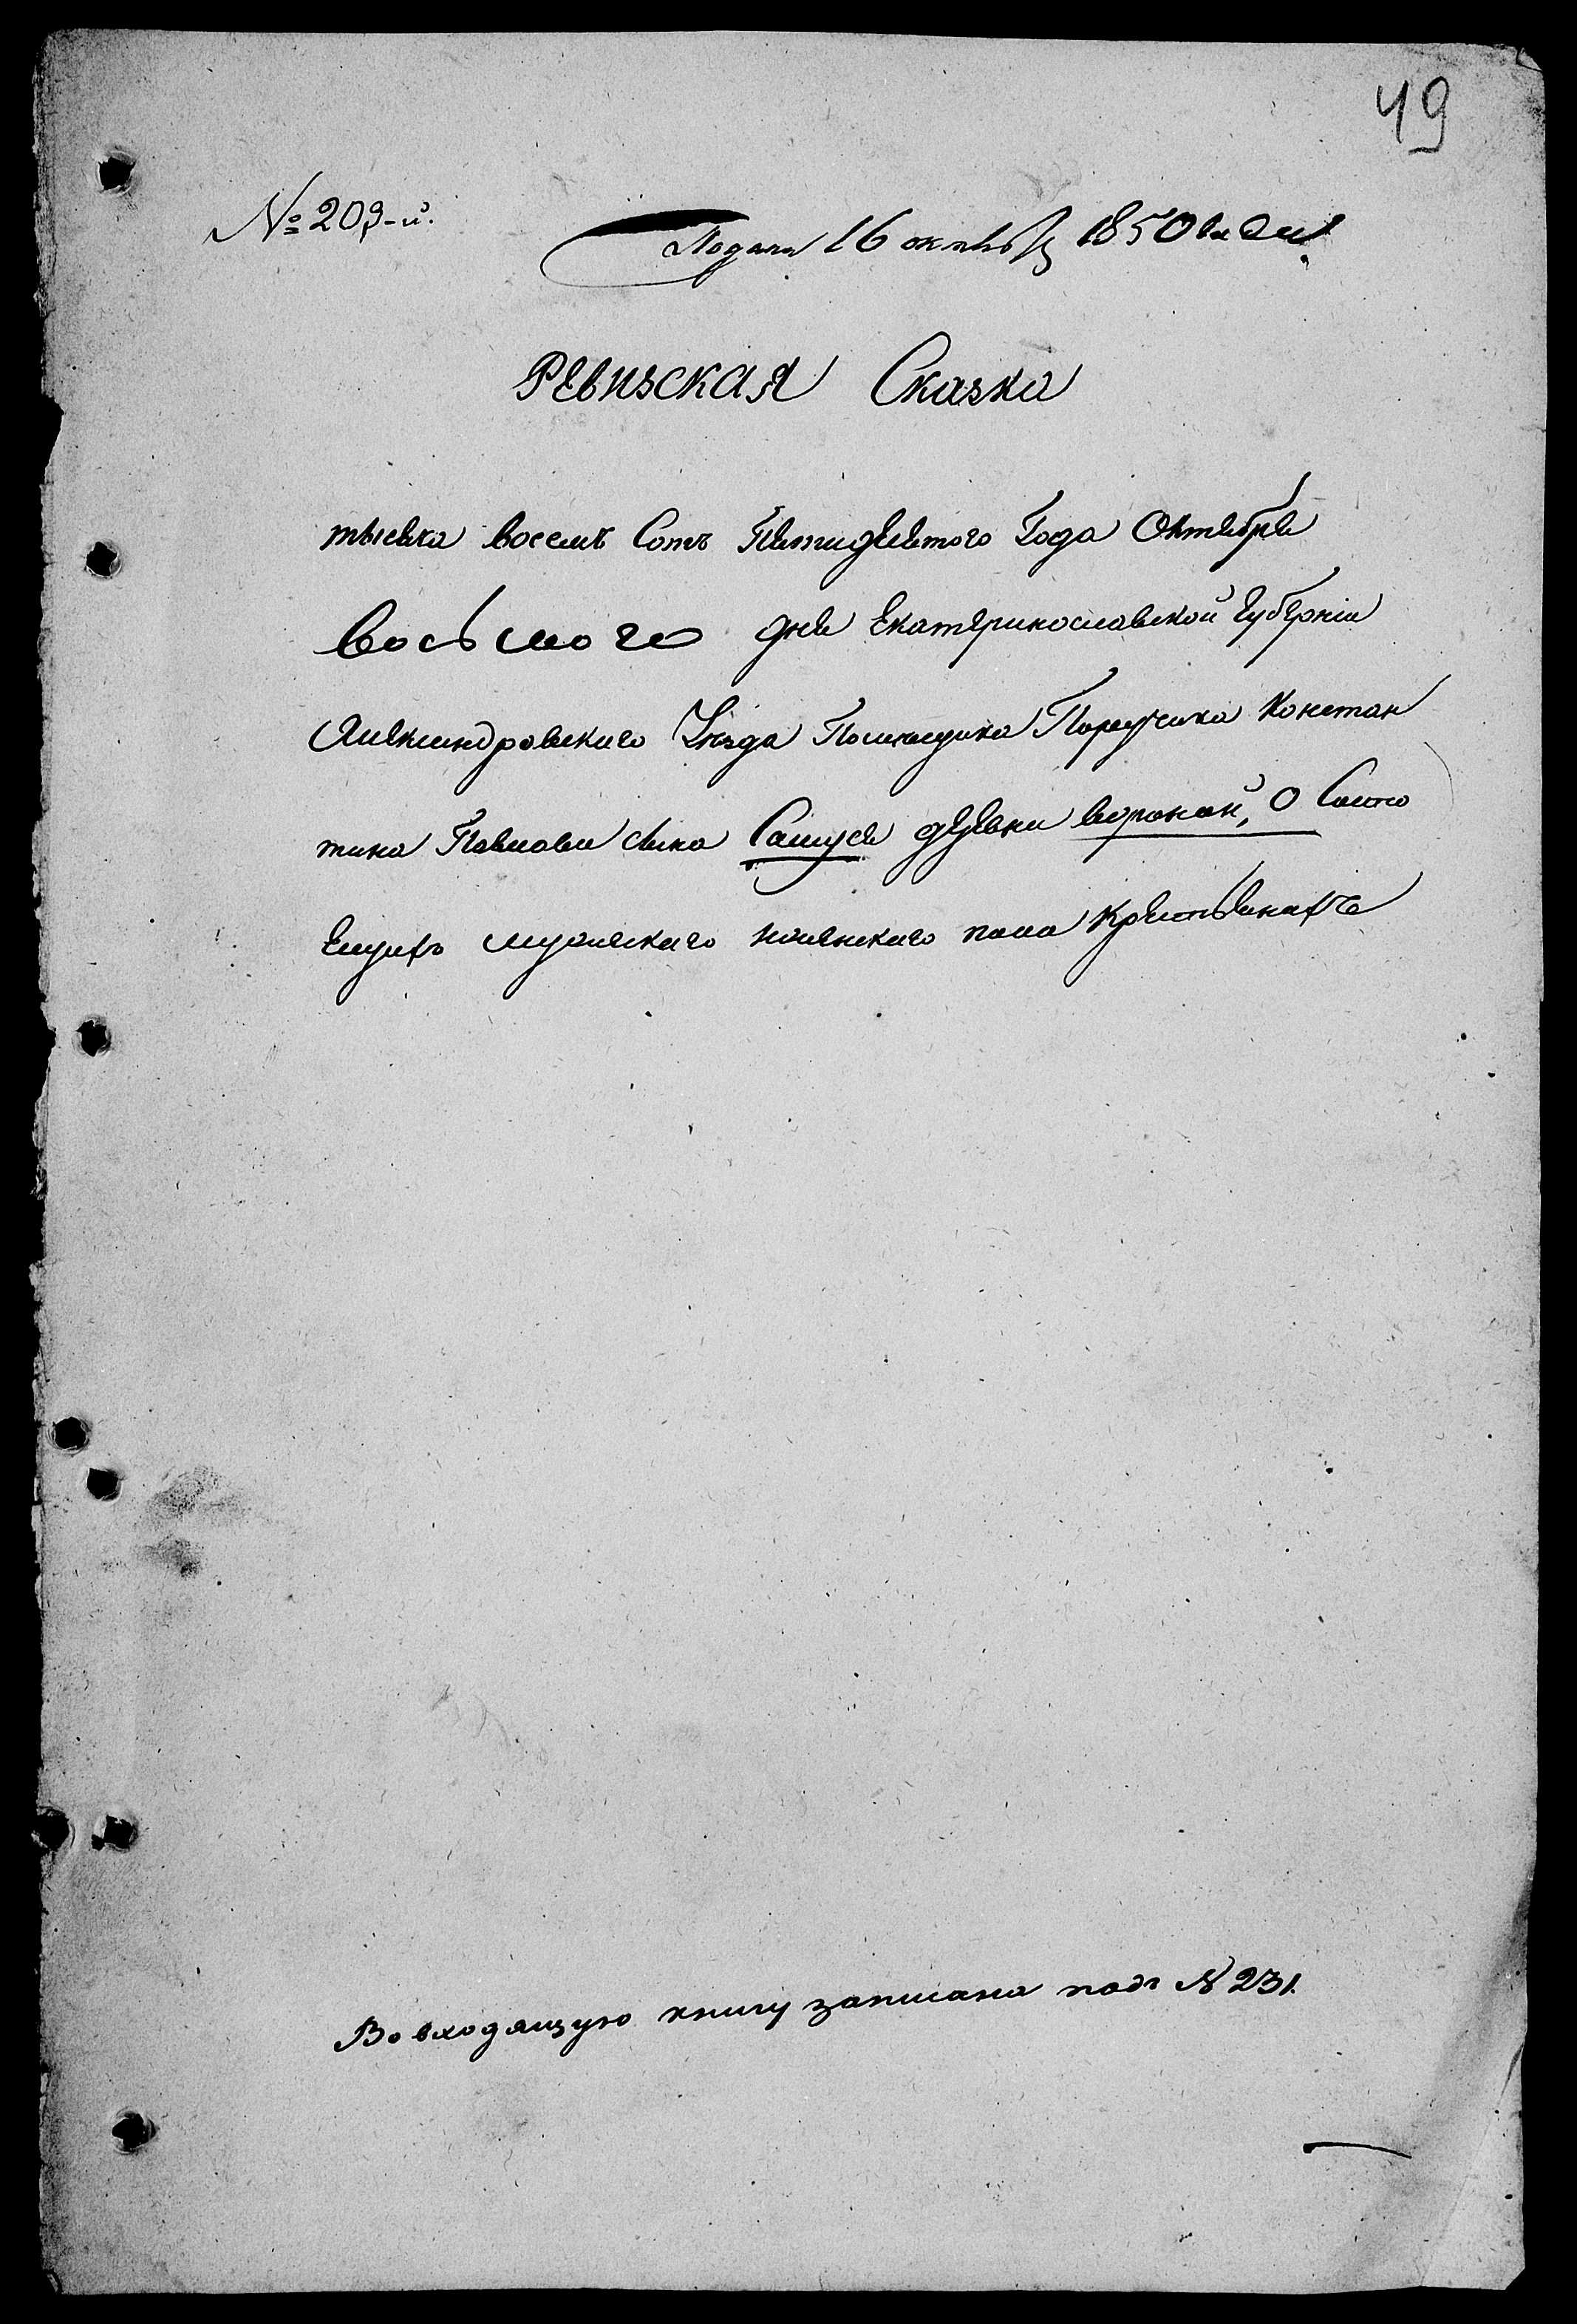 49
№ 209-й.
Подана 16 октября 1850 года
Ревизская Сказка
тысяча восемъ Сотъ Пятидесятого Года Октября
восьмого дня Екатеринославской Губерніи
Александровского Уезда Помещика Поручика Констан
тина Павлова сына Самуся деревни вороной, О Состо
ещихъ мужескаго женскаго пола крестьянахъ
Во входящую книгу записана подъ № 231.